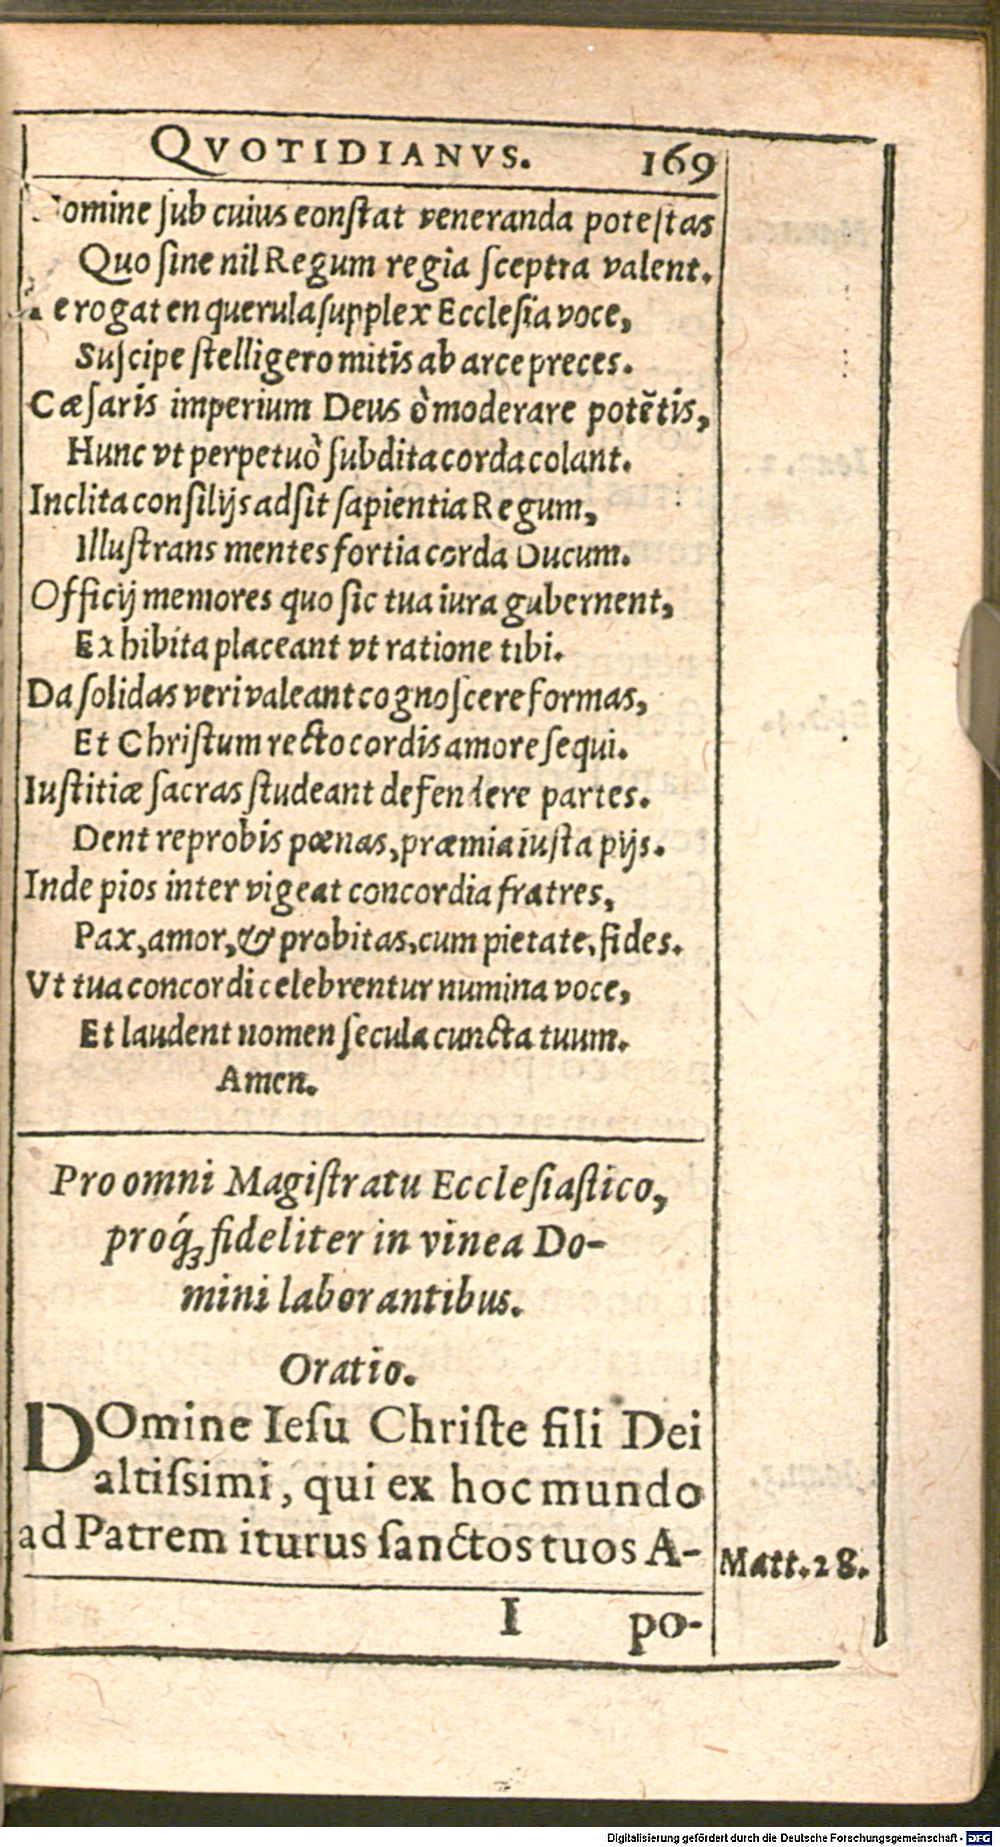 QVOTIDIANVS. 169
Domine ſub cuius eonſtat veneranda poteſtas
Quo ſine nil Regum regia ſceptra valent.
Te rogat en querula ſupplex Eccleſia voce,
Suſcipe ſtelligero mitis ab arce preces.
Cæſaris imperium Deus ò moderare potẽtis,
Hunc vt perpetuò ſubdita corda colant.
Inclita conſilijs adſit ſapientia Regum,
Illuſtrans mentes fortia corda Ducum.
Officij memores quo ſic tua iura gubernent,
Exhibita placeant vt ratione tibi.
Da ſolidas veri valeant cognoſcere formas,
Et Chriſtum recto cordis amore ſequi.
Iuſtitiæ ſacras ſtudeant defendere partes.
Dent reprobis pœnas, præmia iuſta pijs.
Inde pios inter vigeat concordia fratres,
Pax, amor, & probitas, cum pietate, fides.
Vt tua concordi celebrentur numina voce,
Et laudent nomen ſecula cuncta tuum.
Amen.
Pro omni Magiſtratu Eccleſiaſtico,
proq́ꝫ fideliter in vinea Do-
mini laborantibus.
Oratio.
DOmine Ieſu Chriſte fili Dei
altiſsimi, qui ex hoc mundo
ad Patrem iturus ſanctos tuos A-
Matt. 28.
I po-
Digitalisierung gefördert durch die Deutsche Forschungsgemeinschaft - DFG